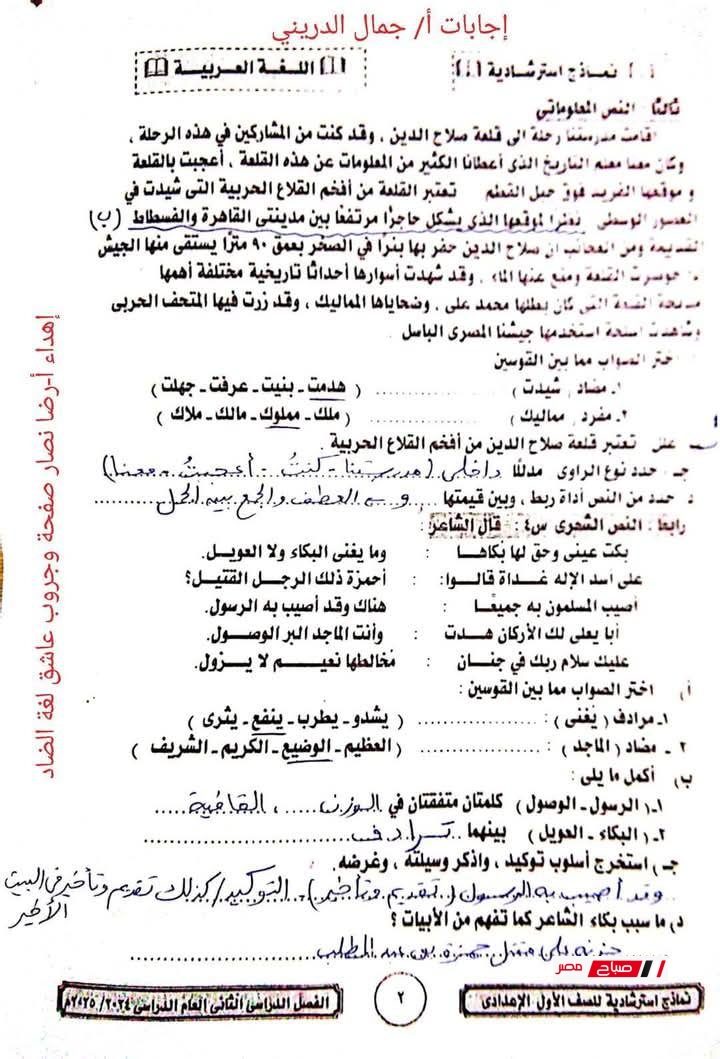 إجابات أ/ جمال الدريني
نماذج استرشادية
اللغة العربية
ثالثا النص المعلوماتى
أقامت مدرستنا رحلة الى قلعة صلاح الدين ، وقد كنت من المشاركين في هذه الرحلة ،
وكان معنا معلم التاريخ الذى أعطانا الكثير من المعلومات عن هذه القلعة ، أعجبت بالقلعة
وموقعها الفريد فوق جبل المقطم تعتبر القلعة من أفخم القلاع الحربية التى شيدت في
العصور الوسطى نظرا لموقعها الذى يشكل حاجزا مرتفعا بين مدينتى القاهرة والفسطاط (ب)
القديمة ومن العجائب ان صلاح الدين حفر بها بئرا في الصخر بعمق ٩٠ مترا يستقى منها الجيش
حوصرت القلعة ومنع عنها الماء ، وقد شهدت أسوارها أحداثا تاريخية مختلفة أهمها
مذبحة القلعة التى كان بطلها محمد على ، وضحاياها المماليك ، وقد زرت فيها المتحف الحربى
وشاهدت أسلحة استخدمها جيشنا المصرى الباسل .
اختر الصواب مما بين القوسين
١ـ مضاد , شيدت ) .............. ( هدمت ـ بنيت ـ عرفت ـ جهلت )
٢ـ مفرد , مماليك ) .............. ( ملك ـ مملوك ـ مالك ـ ملاك )
ـ علل تعتبر قلعة صلاح الدين من أفخم القلاع الحربية .
جـ حدد نوع الراوى مدللا داخلى (مدرستنا - كنتُ - أعجبتُ - معنا)
د حدد من النص أداة ربط ، وبين قيمتها و ← العطف والجمع بين الجمل
رابعا ، النص الشعرى س٤: قال الشاعر:
بكت عينى وحق لها بكاها : وما يغنى البكاء ولا العويل.
على أسد الإله غداة قالوا: : أحمزة ذلك الرجل القتيل؟
أصيب المسلمون به جميعًا : هناك وقد أصيب به الرسول.
أبا يعلى لك الأركان هدت : وأنت الماجد البر الوصول.
عليك سلام ربك في جنان : مُخالطها نعيم لا يزول.
أ) اختر الصواب مما بين القوسين:
١ـ مرادف ( يُغنى ) : .............. ( يشدو ـ يطرب ـ ينفع ـ يثرى )
٢ ـ مضاد ( الماجد ) : .............. (العظيم ـ الوضيع ـ الكريم ـ الشريف )
ب) أكمل ما يلى:
١ـ( الرسول ـ الوصول ) كلمتان متفقتان في الوزن ، القافية
٢ـ( البكاء ـ العويل ) بينهما ترادف
جـ) استخرج أسلوب توكيد ، واذكر وسيلته ، وغرضه.
وقد أصيب به الرسول (تقديم وتأخير) التوكيد / كذلك تقديم وتأخير في البيت
الأخير
د) ما سبب بكاء الشاعر كما تفهم من الأبيات ؟
حزنه على مقتل حمزة بن عبد المطلب
صباح مصر
نماذج استرشادية للصف الأول الإعدادى
٢
الفصل الدراسى الثانى العام الدراسى ٢٠٢٤/ ٢٠٢٥م
إهداء أ-رضا نصار صفحة وجروب عاشق لغة الضاد